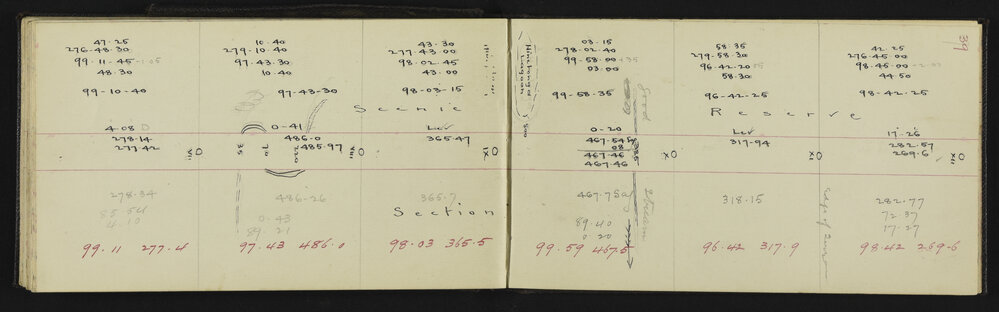 39
47·25
276-48·30
99·11-45-1·05
48·30
99-10-40
10·40
279-10·40
97·43·30
10·40
97-43-30
43·30
277-43·00
98-02·45
43·00
98-03-15
Scenic
4·08
278·14
277·42
VII
0-41
486·0
485·97
35
70
220
VIII
Lev
365·47
IX
278·34
85·54
4·10
486·26
0·43
89·21
365·7
Section
99·11 277·4
97·43 486·0
98·03 365·5
Lagoon
03·15
278·02·40
99-58·00+35
03·00
99-58·35
58·35
279-58·30
96·42·20
58·30
96-42-25
42·25
276-45·00
98·45·00
44·50
98-42-25
Reserve
0-20
467·54
08
467·46
467·46
X
Lev
317·94
XI
17·26
282·57
269·6
XII
467·7
89·40
0·20
Stream
318·15
282·77
72·37
17·27
99·59 467·5
96·42 317·9
98·42 269·6